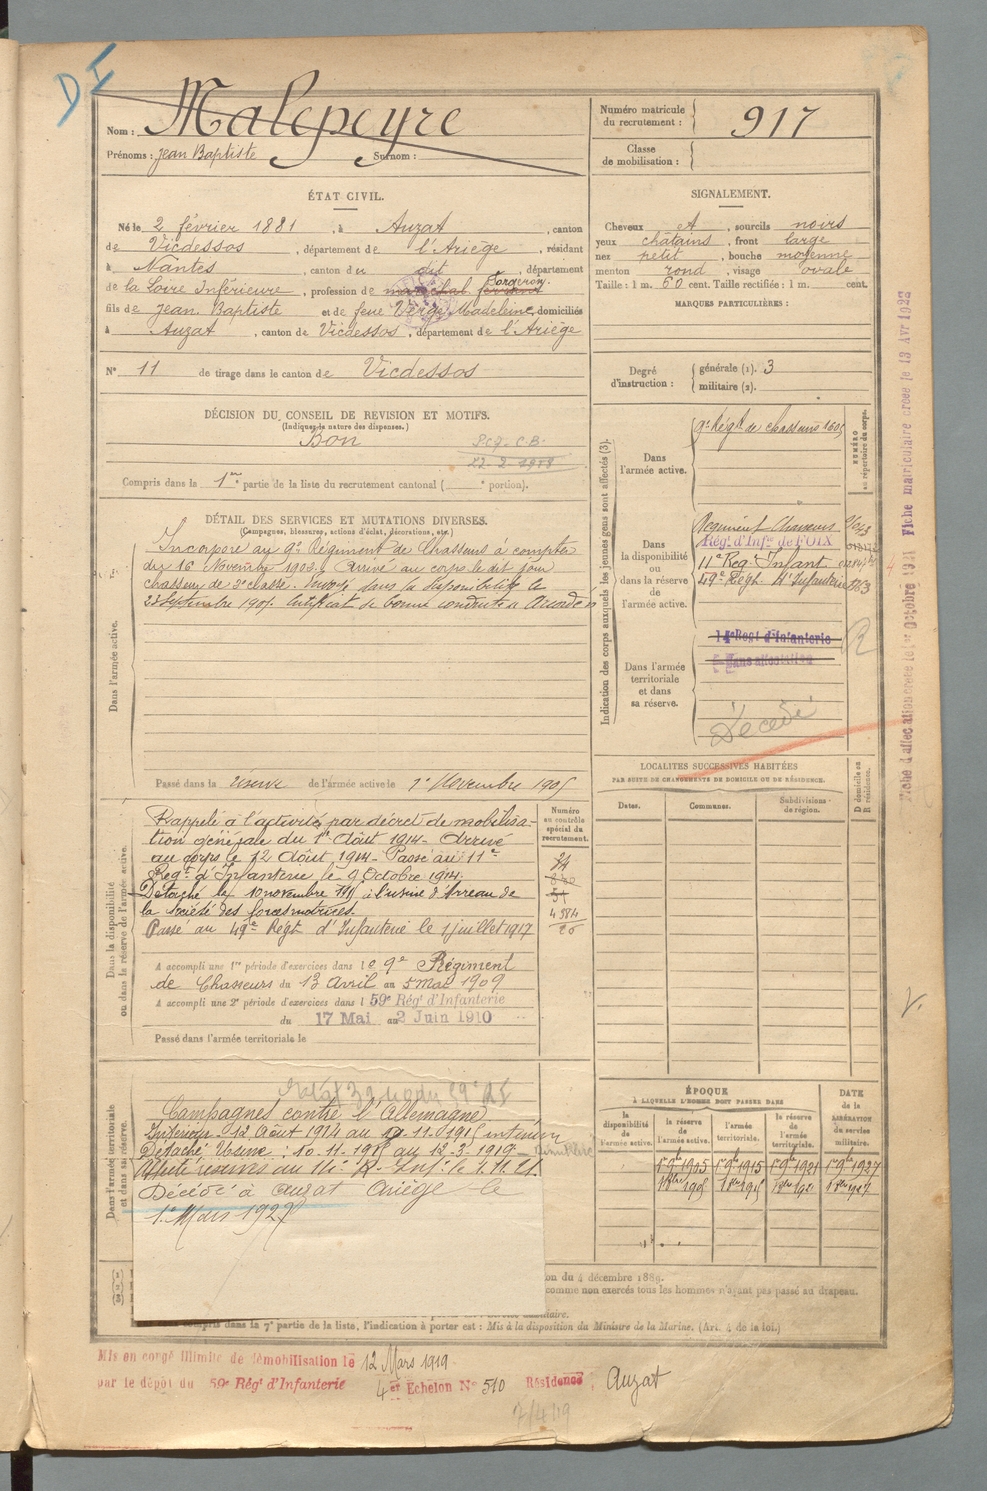 D I
Nom : Malepeyre
Prénoms : Jean Baptiste Surnom :
Numéro matricule du recrutement : 917
Classe de mobilisation :
ÉTAT CIVIL.
Né le 2 février 1881, à Auzat, canton
de Vicdessos, département de l'Ariège, résidant
à Nantes, canton du dit, département
de la Loire Inférieure, profession de maréchal ferrant Forgeron.
fils de Jean Baptiste et de feue Vergé Madeleine, domiciliés
à Auzat, canton de Vicdessos, département de l'Ariège
N° 11 de tirage dans le canton de Vicdessos
SIGNALEMENT.
Cheveux et, sourcils noirs
yeux châtains, front large
nez petit, bouche moyenne
menton rond, visage ovale
Taille : 1 m. 60 cent. Taille rectifiée : 1 m. cent.
MARQUES PARTICULIÈRES :
Degré d'instruction : générale (1). 3
militaire (2).
DÉCISION DU CONSEIL DE REVISION ET MOTIFS.
(Indiquer la nature des dispenses.)
Bon
Compris dans la 1re partie de la liste du recrutement cantonal ( e portion).
DÉTAIL DES SERVICES ET MUTATIONS DIVERSES.
(Campagnes, blessures, actions d'éclat, décorations, etc.)
Dans l'armée active.
Incorporé au 9e Régiment de Chasseurs à compter
du 16 Novembre 1902. Arrivé au corps le dit jour
chasseur de 2e classe. Envoyé dans la disponibilité le
23 Septembre 1905. Certificat de bonne conduite a Accordé
Passé dans la réserve de l'armée active le 1er Novembre 1905
Indication des corps auxquels les jeunes gens sont affectés (3).
NUMÉRO au répertoire du corps.
Dans l'armée active.
9e Régt de chasseurs
Dans la disponibilité ou dans la réserve de l'armée active.
Régiment Chasseurs
Régt d'Infie de FOIX
11e Régt Infant
49e Régt d'Infanterie
Dans l'armée territoriale et dans sa réserve.
14e Régt d'Infanterie
Sans affectation
Décédé
Fiche matriculaire créée le 13 Avr 1923
Fiche d'affectation créée le
LOCALITÉS SUCCESSIVES HABITÉES
PAR SUITE DE CHANGEMENTS DE DOMICILE OU DE RÉSIDENCE.
Dates. Communes. Subdivisions de région.
D domicile ou R résidence.
Dans la disponibilité ou dans la réserve de l'armée active.
Numéro au contrôle spécial du recrutement.
Rappelé à l'activité par décret de mobilisa-
tion générale du 1er Août 1914. Arrivé
au corps le 12 Août 1914. Passé au 11e
Regt d'Infanterie le 9 Octobre 1914.
Détaché le 10 novembre 1915 à l'usine d'Arreau de
la société des forces motrices.
Passé au 49e Régt d'Infanterie le 1 juillet 1917
4984
A accompli une 1re période d'exercices dans le 9e Régiment
de Chasseurs du 13 Avril au 5 mai 1909
A accompli une 2e période d'exercices dans l 59e Régt d'Infanterie
du 17 Mai au 2 Juin 1910
Passé dans l'armée territoriale le
Dans l'armée territoriale et dans sa réserve.
Campagnes contre l'Allemagne
Intérieur. 12 Août 1914 au 9-11-1915 intérieur
Détaché Usine : 10-11-1915 au 12-3-1919
Décédé à Auzat Ariège le
1er Mars 1927
ÉPOQUE
À LAQUELLE L'HOMME DOIT PASSER DANS
la disponibilité de l'armée active.
la réserve de l'armée active.
l'armée territoriale.
la réserve de l'armée territoriale.
DATE de la LIBÉRATION du service militaire.
1er 9bre 1905 1er 9bre 1915 1er 9bre 1921 1er 9bre 1927
on du 4 décembre 1889.
comme non exercés tous les hommes n'ayant pas passé au drapeau.
compris dans la 7e partie de la liste, l'indication à porter est : Mis à la disposition du Ministre de la Marine. (Art. 4 de la loi.)
Mis en congé illimité de démobilisation le 12 Mars 1919
par le dépôt du 59e Régt d'Infanterie 4er Echelon N° 510 Résidence, Auzat